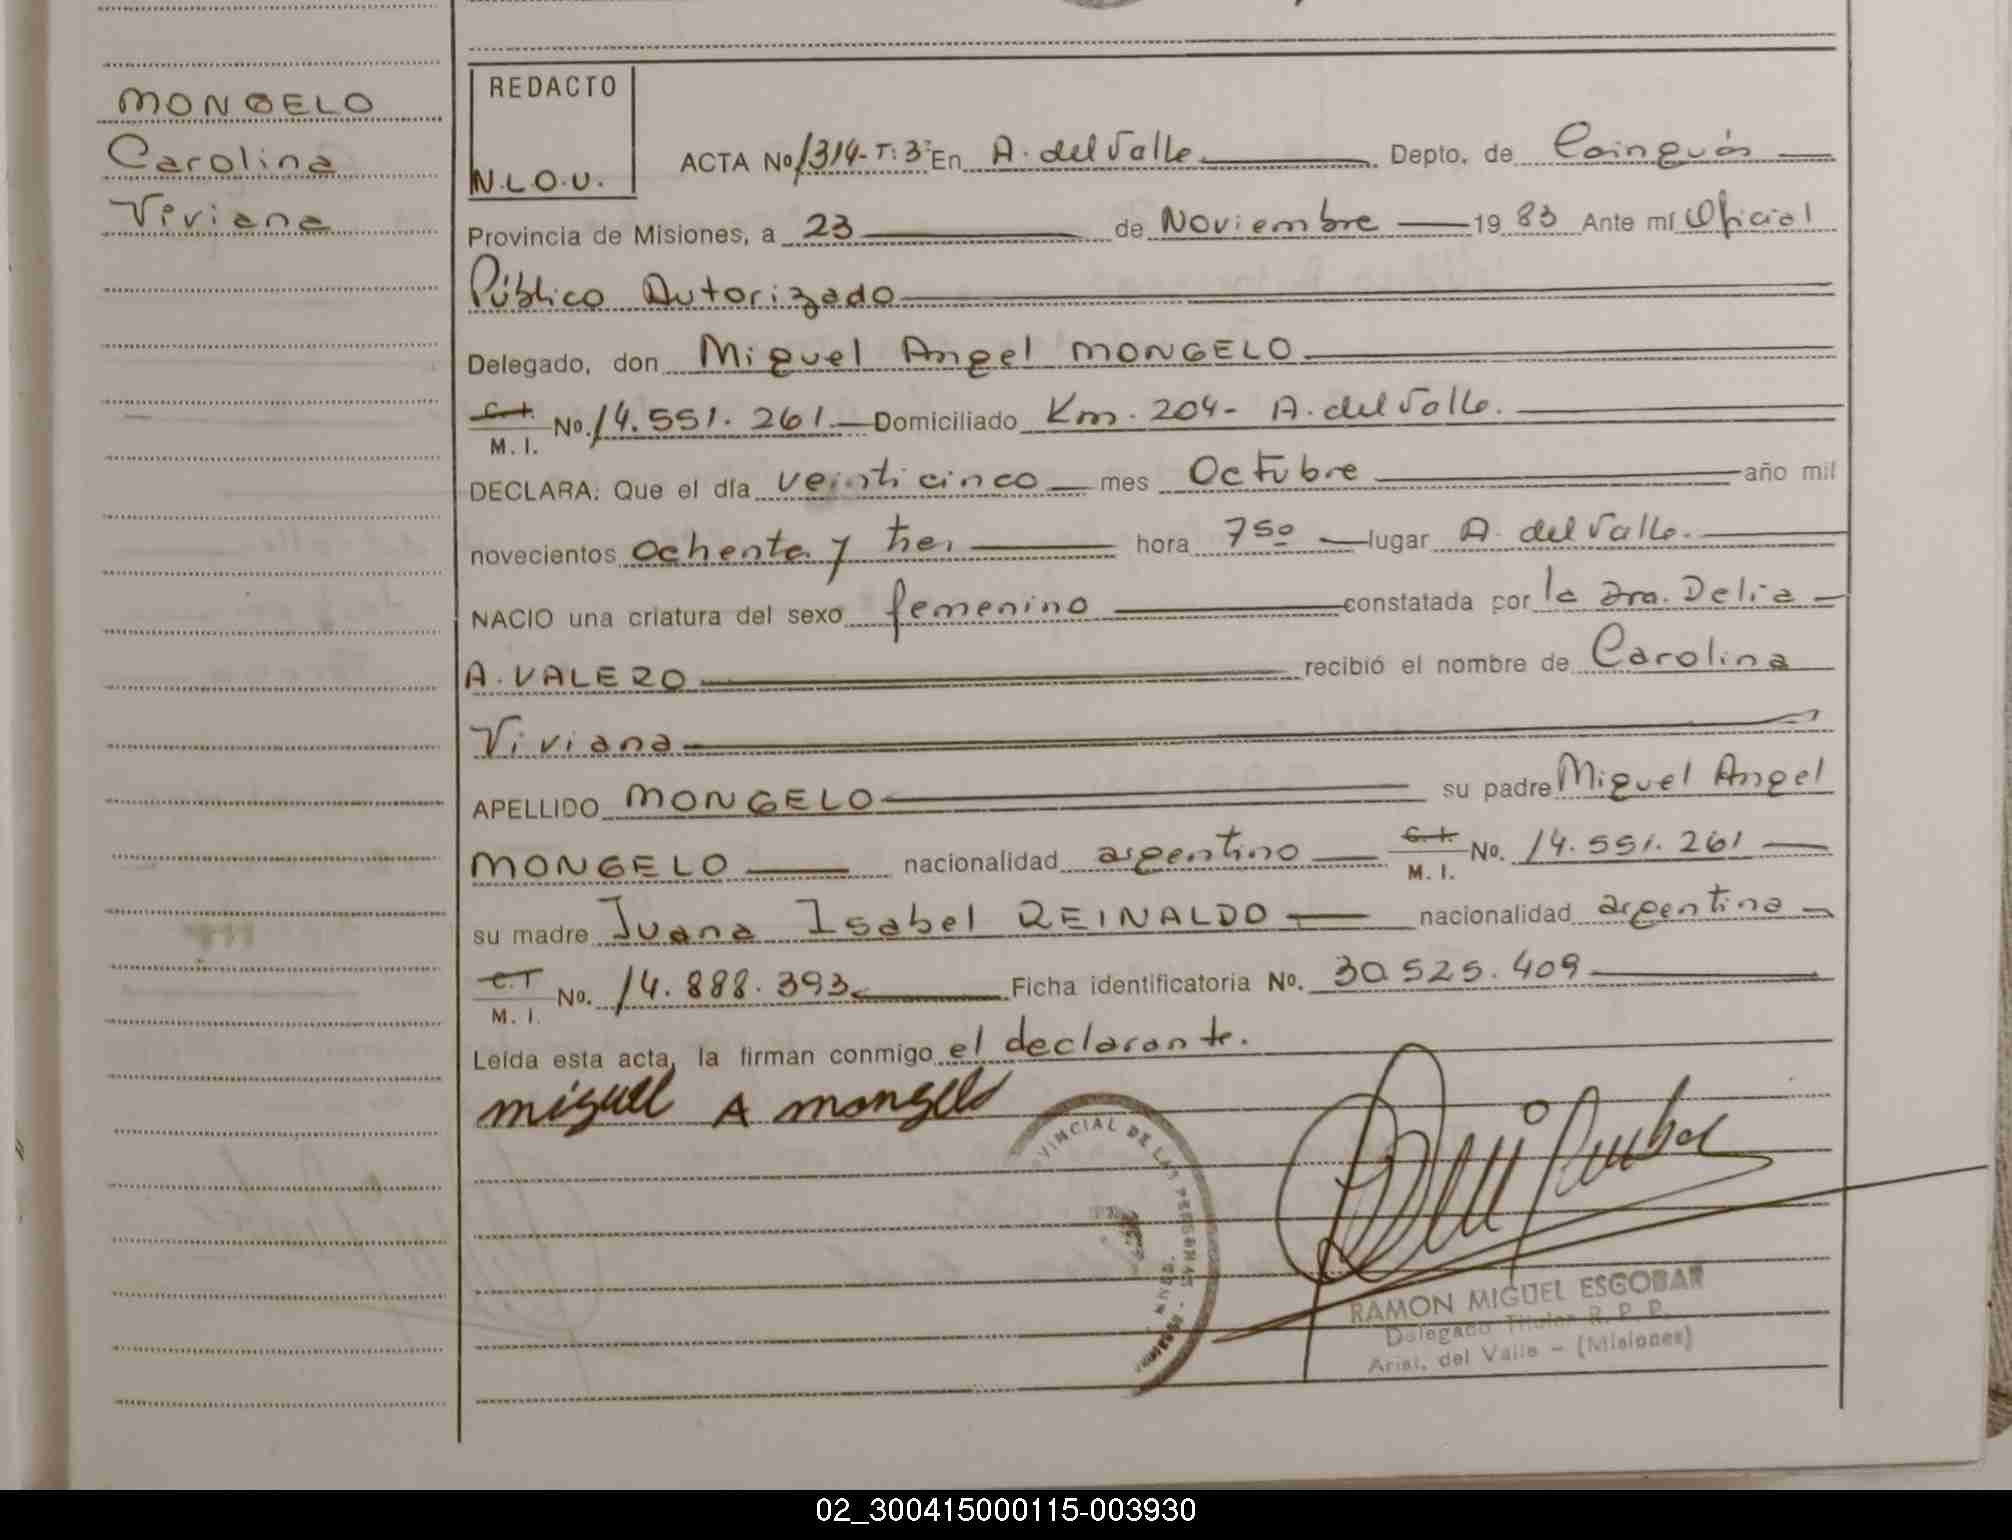 MONGELO
Carolina
Viviana
REDACTO
N.L.O.U.
ACTA No 1314-T:3º En A. del Valle Depto, de Cainguás
Provincia de Misiones, a 23 de Noviembre 1983 Ante mí Oficial
Público Autorizado
Delegado, don Miguel Angel MONGELO
C.I. M.I. No. 14.551.261. Domiciliado Km. 204- A. del Valle.
DECLARA: Que el día veinticinco mes Octubre año mil
novecientos ochenta y tres hora 7 50 lugar A. del Valle.
NACIO una criatura del sexo femenino constatada por la Dra. Delia
A. VALERO recibió el nombre de Carolina
Viviana
APELLIDO MONGELO su padre Miguel Angel
MONGELO nacionalidad argentino C.I. M.I. No. 14.551.261
su madre Juana Isabel REINALDO nacionalidad argentina
C.I M.I. No. 14.888.393 Ficha identificatoria No. 30.525.409
Leída esta acta, la firman conmigo el declarante.
miguel A mongelo
VINCIAL DE LAS PERSONAS
RAMON MIGUEL ESCOBAR
Delegado Titular R. P. P.
Arist. del Valle - (Misiones)
02_300415000115-003930